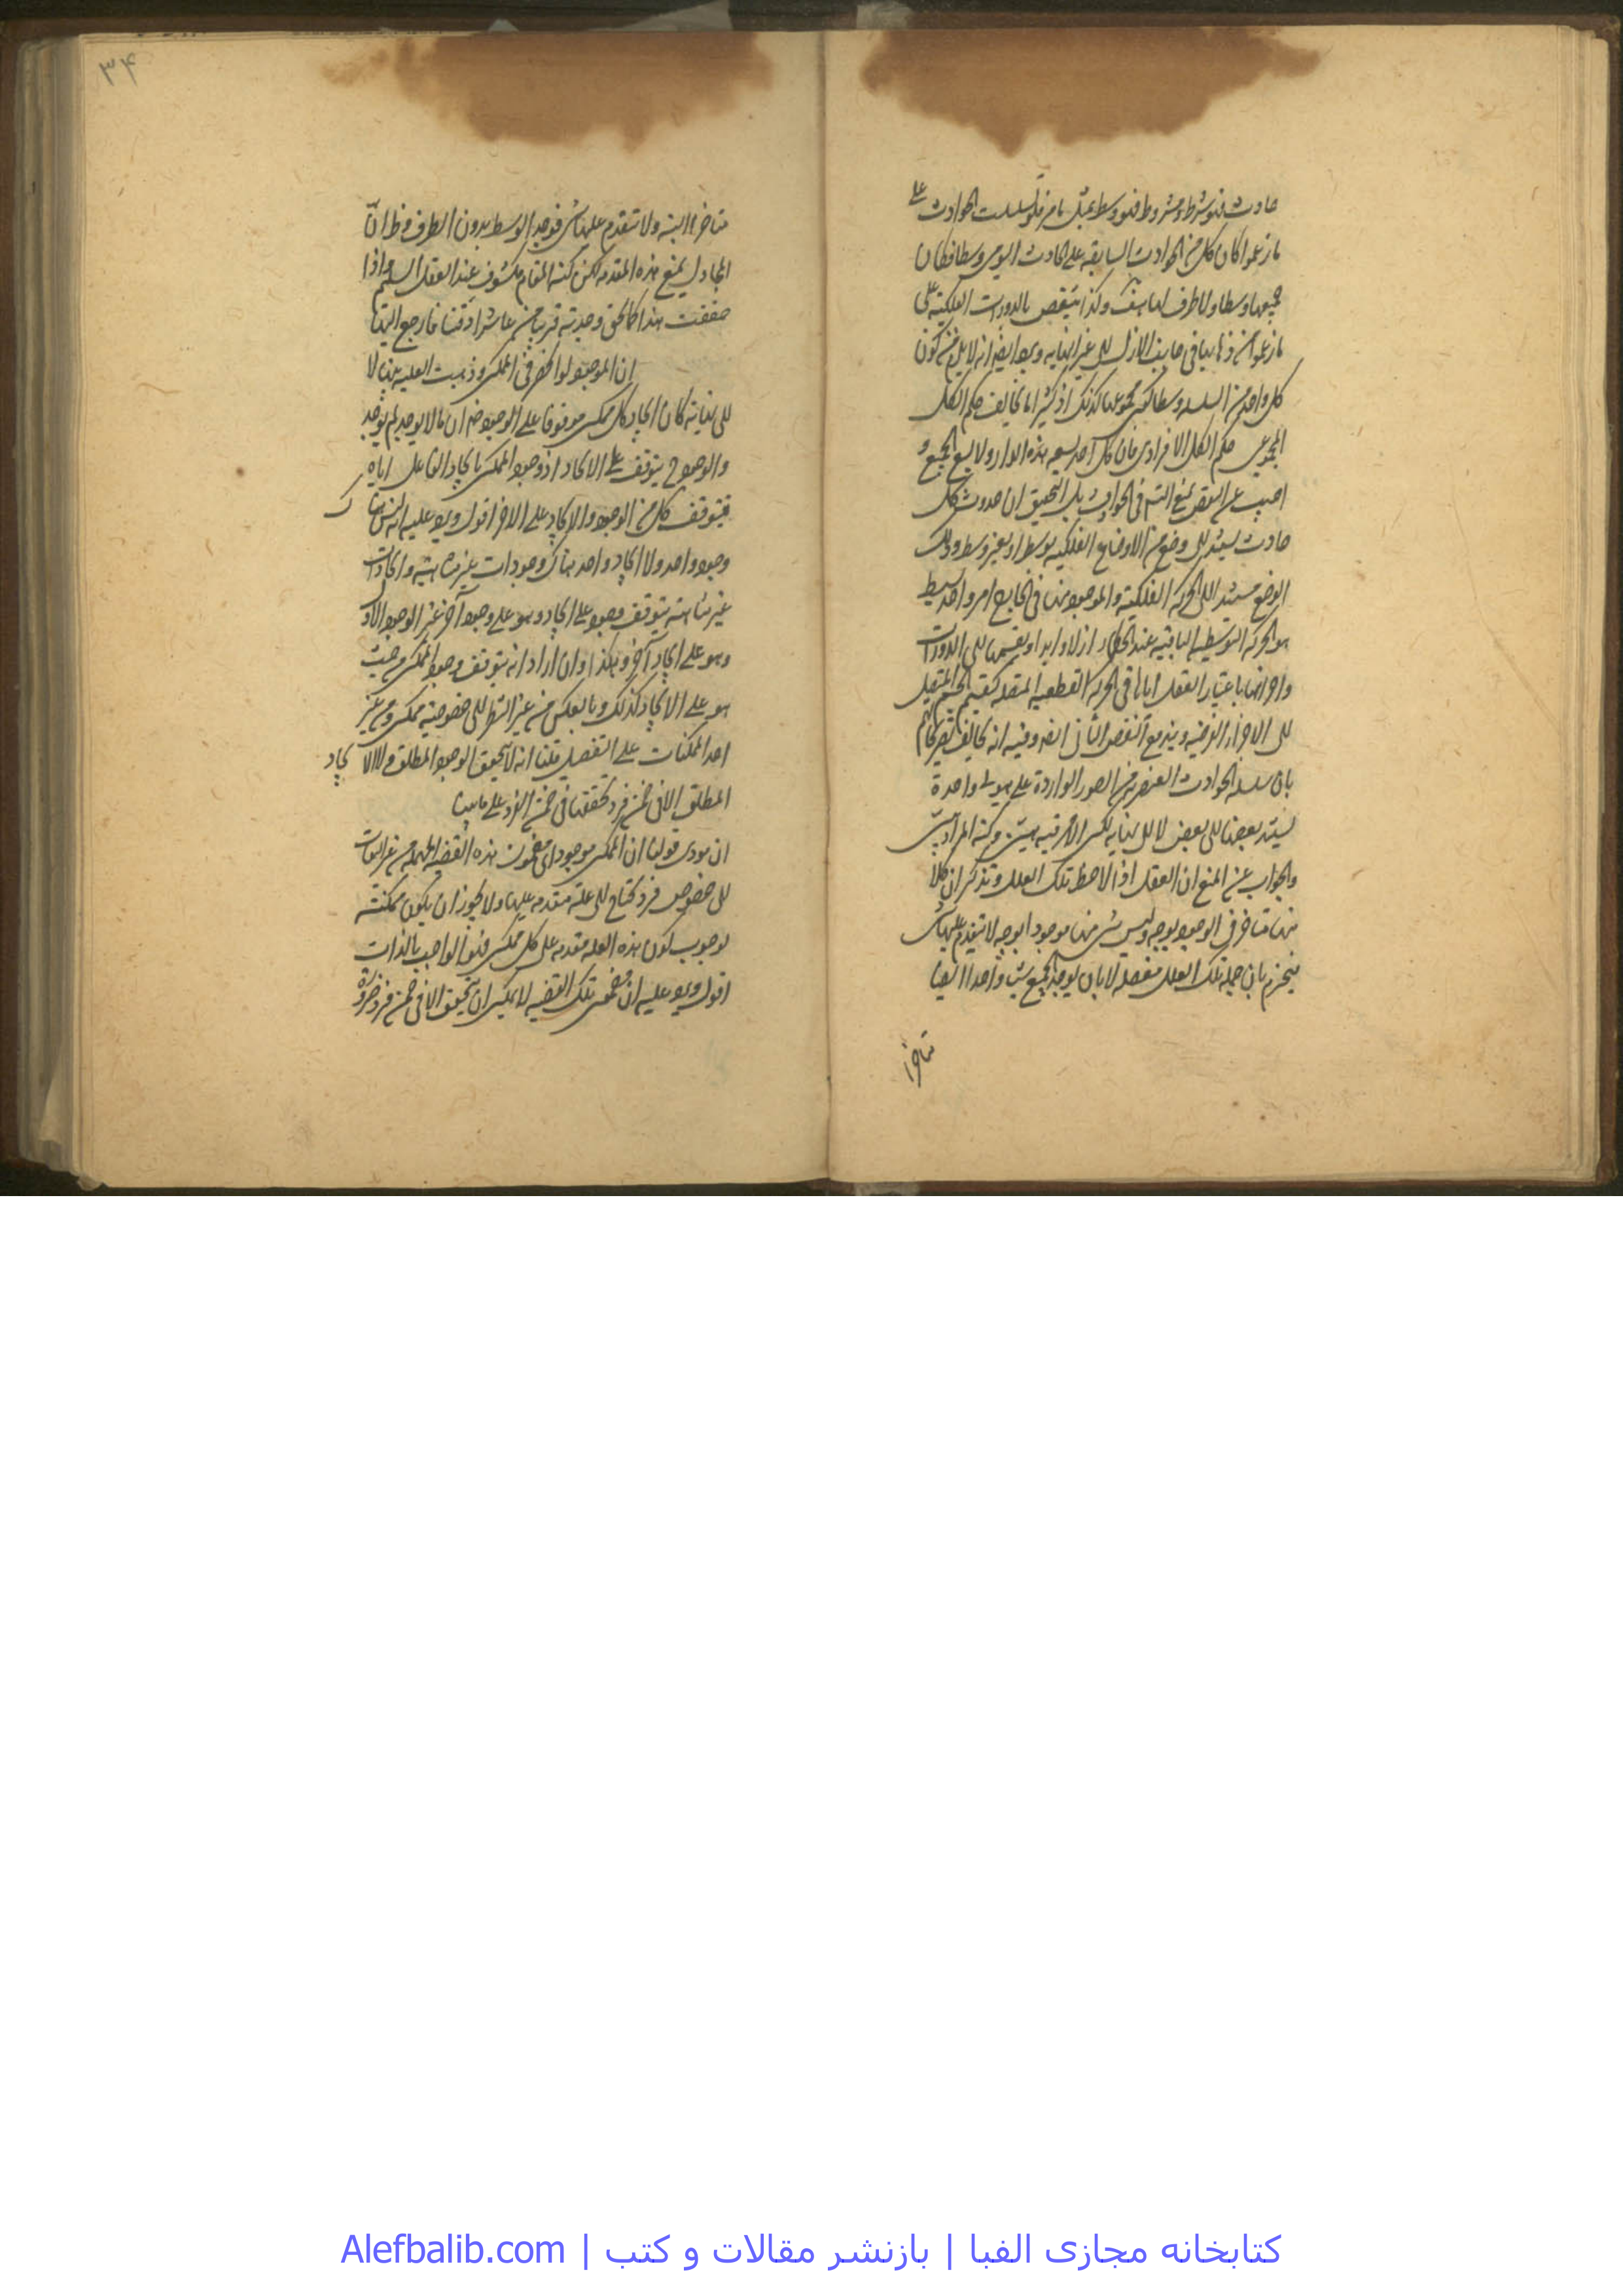 حادث فهو شرط ومشروط فهو وسط بمثل ما مر فلو تسلسلت الحوادث على
ما زعموا كان كل من الحوادث السابقة على الحادث اليومى وسطا فكان
جميعها وسطا ولا طرف لها هف وكذا ينتقض بالدورات الفلكية على
ما زعموا من ذهابها فى جانب الازل الى غير النهاية ويرد ايضا انه لا يلزم من كون
كل واحد من السلسلة وسطا كون مجموعها كذلك اذ كثيرا ما يخالف حكم الكل
المجموعى حكم الكل الافرادى فان كل احد يسعه هذه الدار ولا يسع الجميع و
اجيب عن النقض بمنع التسم فى الحوادث بل التحقيق ان حدوث كل
حادث يستند الى وضع من الاوضاع الفلكية بوسط او بغير وسط وذلك
الوضع مستند الى الحركة الفلكية والموجود منها فى الخارج امر واحد بسيط
هو الحركة التوسطية الباقية عند الحكماء ازلا وابدا وتقسيمها الى الدورات
واجزائها باعتبار العقل اياها فى الحركة القطعية المتصلة كتقسيم الجسم المتصل
الى الاجزاء الفرضية ويندفع النقض الثانى ايضا وفيه انه يخالف تصريحاتهم
بان سلسلة الحوادث العنصرية من الصور الواردة على هيولى واحدة
يستند بعضها الى بعض لا الى نهاية لكن الامر فيه هين
والجواب عن المنع ان العقل اذا لاحظ تلك العلل وتذكر ان كلا
منها متاخر فى الوجود بوجه وليس شى منها موجودا بوجه لا يتقدم عليها شى
فيجزم بان جملة تلك العلل مفصلة لا بان يوجد الجميع شيئا واحدا ايضا
متاخرا
۳۴
متاخرا البتة ولا يتقدم عليها شى فوجد الوسط بدون الطرف فظ ان
المجادل يمنع هذه المقدمة لكن كنه المقام مكشوف عند العقل السليم واذا
حققت هذا كالحق وجدته قريبا من عاشر اذقنا فارجع اليها
ان الموجود لو انحصر فى الممكن وذهبت العلية بينها لا
الى نهاية كان ايجاد كل ممكن موقوفا على الوجود ضرورة ان ما لا يوجد لم يوجد
والوجود ح يتوقف على الايجاد اذ وجود الممكن بايجاد الفاعل اياه
فيتوقف كل من الوجود والايجاد على الاخر اقول ويرد عليه انه ليس هناك
وجود واحد ولا ايجاد واحد هناك وجودات غير متناهية وايجادات
غير متناهية يتوقف وجود على ايجاد وهو على وجود آخر غير الوجود الاول
وهو على ايجاد آخر وهكذا وان اراد انه يتوقف وجود الممكن من حيث
هو على الايجاد كذلك وبالعكس من غير النظر الى خصوصية ممكن من غير
احد الممكنات على التفصيل قلنا انه لا يتحقق الوجود المطلق ولا الايجاد
المطلق الا فى ضمن فرد تحققها فى ضمن الفرد على ما بينا
ان مودى قولنا ان الممكن موجود اى مضمون هذه القضية المهملة من غير التفات
الى خصوص فرد يحتاج الى علة متقدمة عليها ولا يجوز ان يكون ممكنة
لوجوب كون هذه العلة متقدمة على كل ممكن فهو الواجب بالذات
اقول ويرد عليه ان مضمون تلك القضية لا يمكن ان يتحقق الا فى ضمن فرد ضرورة
کتابخانه مجازی الفبا | بازنشر مقالات و کتب | Alefbalib.com